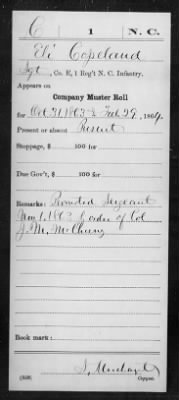 C 1 N. C.
Eli Copeland
Sgt, Co. E, 1 Reg't N. C. Infantry.
Appears on
Company Muster Roll
for Oct 31, 1863 to Feb 29, 1864.
Present or absent Present
Stoppage, $ 100 for
Due Gov't, $ 100 for
Remarks: Promoted Sergeant
Nov 1, 1863 by order of Col
J. M.
Book mark:
Copyist.